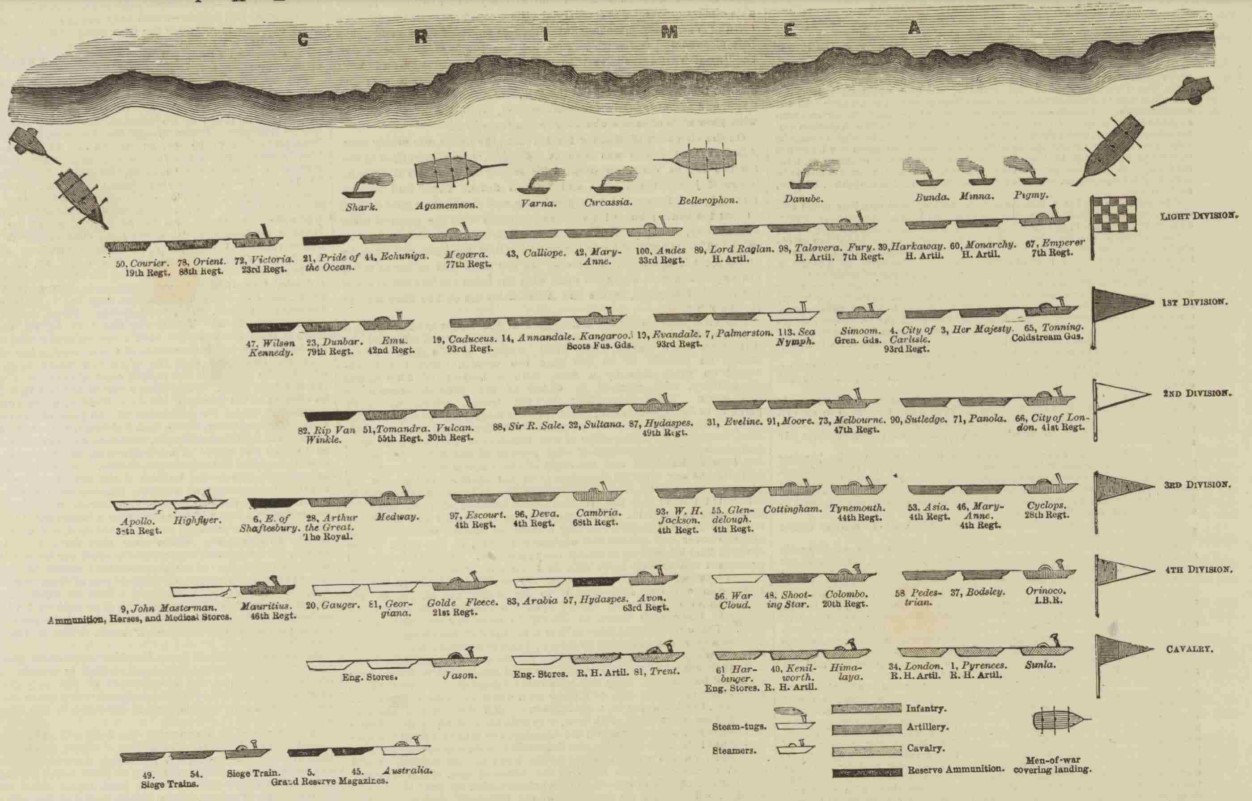 C R I M E A
Shark. Agamemnon. Varna. Circassia. Bellerophon. Danube. Bunda. Minna. Pigmy.
LIGHT DIVISION.
50, Courier. 78, Orient. 72, Victoria. 21, Pride of 44, Echuniga. Megæra. 43, Calliope. 42, Mary- 100, Andes 89, Lord Raglan. 98, Talavera. Fury. 39, Harkaway. 60, Monarchy. 67, Emperor
19th Regt. 88th Regt. 23rd Regt. the Ocean. 77th Regt. Anne. 33rd Regt. H. Artil. H. Artil. 7th Regt. H. Artil. H. Artil. 7th Regt.
1ST DIVISION.
47, Wilson 23, Dunbar. Emu. 19, Caduceus. 14, Annandale. Kangaroo. 10, Evandale. 7, Palmerston. 113, Sea Simoom. 4, City of 3, Her Majesty. 65, Tonning.
Kennedy. 79th Regt. 42nd Regt. 93rd Regt. Scots Fus. Gds. 93rd Regt. Nymph. Gren. Gds. Carlisle. Coldstream Gds.
93rd Regt.
2ND DIVISION.
82, Rip Van 51, Tomandra. Vulcan. 88, Sir R. Sale. 32, Sultana. 87, Hydaspes. 31, Eveline. 91, Moore. 73, Melbourne. 90, Sutledge. 71, Panola. 66, City of Lon-
Winkle. 55th Regt. 30th Regt. 49th Regt. 47th Regt. don. 41st Regt.
3RD DIVISION.
Apollo. Highflyer. 6, E. of 28, Arthur Medway. 97, Escourt. 96, Deva. Cambria. 93, W. H. 55, Glen- Cottingham. Tynemouth. 53, Asia. 46, Mary- Cyclops.
Regt. Shaftesbury. the Great. 4th Regt. 4th Regt. 68th Regt. Jackson. delough. 44th Regt. 4th Regt. Anne. 28th Regt.
The Royal. 4th Regt. 4th Regt. 4th Regt.
4TH DIVISION.
9, John Masterman. Mauritius. 20, Gauger. 81, Geor- Golde Fleece. 83, Arabia 57, Hydaspes. Avon. 56, War 48, Shoot- Colombo. 58 Pedes- 37, Bodsley. Orinoco.
Ammunition, Horses, and Medical Stores. 46th Regt. giana. 21st Regt. 63rd Regt. Cloud. ing Star. 20th Regt. trian. 1.B.R.
CAVALRY.
Eng. Stores. Jason. Eng. Stores. R. H. Artil. 81, Trent. 61 Har- 40, Kenil- Hima- 34, London. 1, Pyrences. Simla.
binger. worth. laya. R. H. Artil. R. H. Artil.
Eng. Stores. R. H. Artil.
Steam-tugs. Infantry.
Artillery.
Steamers. Cavalry.
Reserve Ammunition.
Men-of-war
covering landing.
49. 54. Siege Train. 5. 45. Australia.
Siege Trains. Grand Reserve Magazines.